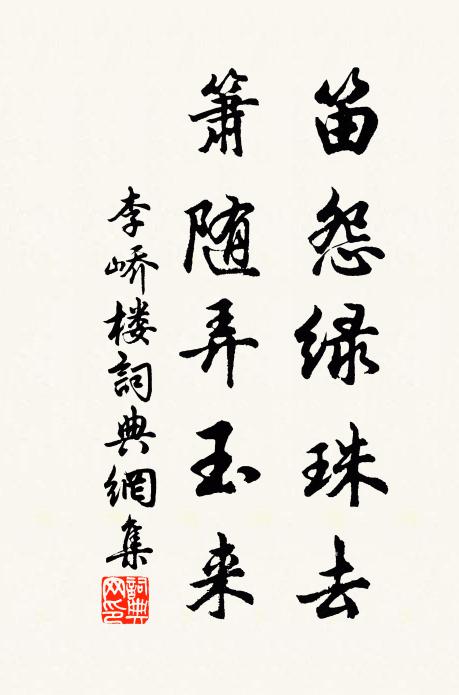 笛怨绿珠去
箫随弄玉来
李峤楼詞典網集
詞典网印